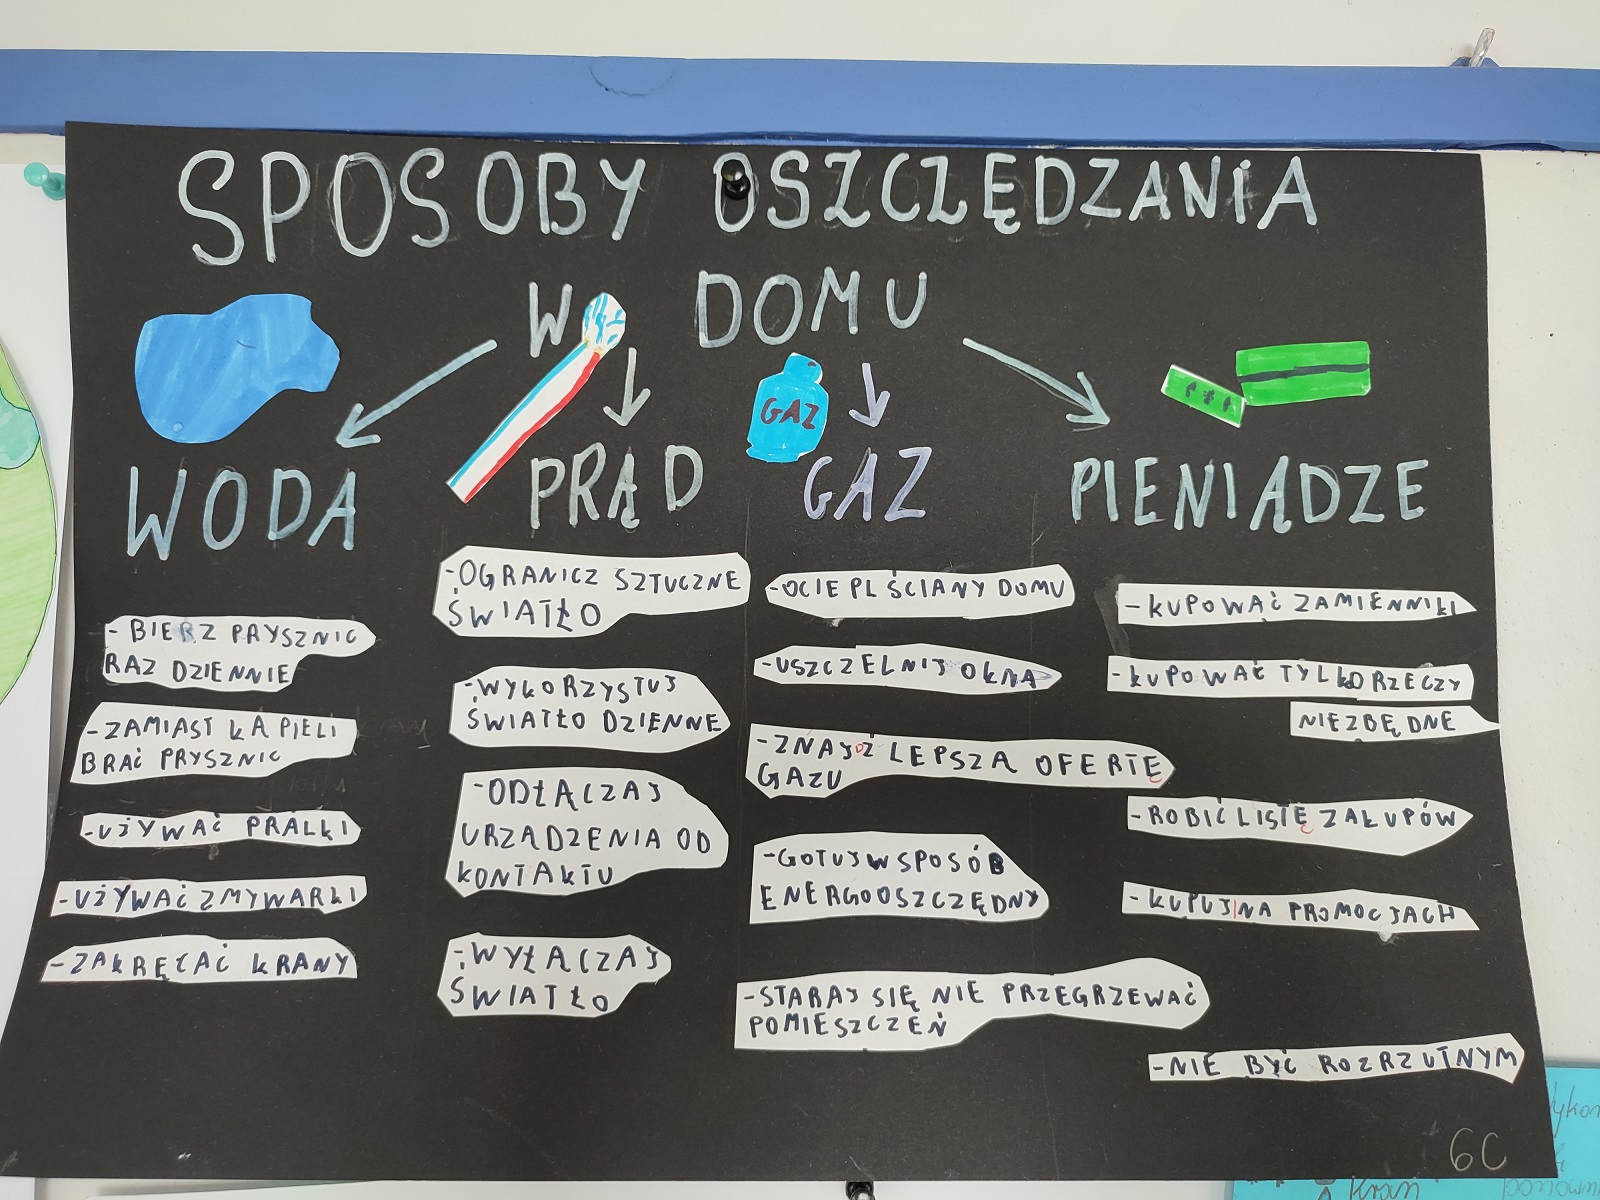 SPOSOBY OSZCZĘDZANIA
W DOMU
WODA
- BIERZ PRYSZNIC
RAZ DZIENNIE
- ZAMIAST KĄPIELI
BRAĆ PRYSZNIC
- UŻYWAĆ PRALKI
- UŻYWAĆ ZMYWARKI
- ZAKRĘCAĆ KRANY
PRĄD
- OGRANICZ SZTUCZNE
ŚWIATŁO
- WYKORZYSTUJ
ŚWIATŁO DZIENNE
- ODŁĄCZAJ
URZĄDZENIA OD
KONTAKTU
- WYŁĄCZAJ
ŚWIATŁO
GAZ
GAZ
- OCIEPL ŚCIANY DOMU
- USZCZELNIJ OKNA
- ZNAJDŹ LEPSZĄ OFERTĘ
GAZU
- GOTUJ W SPOSÓB
ENERGOOSZCZĘDNY
- STARAJ SIĘ NIE PRZEGRZEWAĆ
POMIESZCZEŃ
PIENIĄDZE
- KUPOWAĆ ZAMIENNIKI
- KUPOWAĆ TYLKO RZECZY
NIEZBĘDNE
- ROBIĆ LISTĘ ZAKUPÓW
- KUPUJ NA PROMOCJACH
- NIE BYĆ ROZRZUTNYM
6C